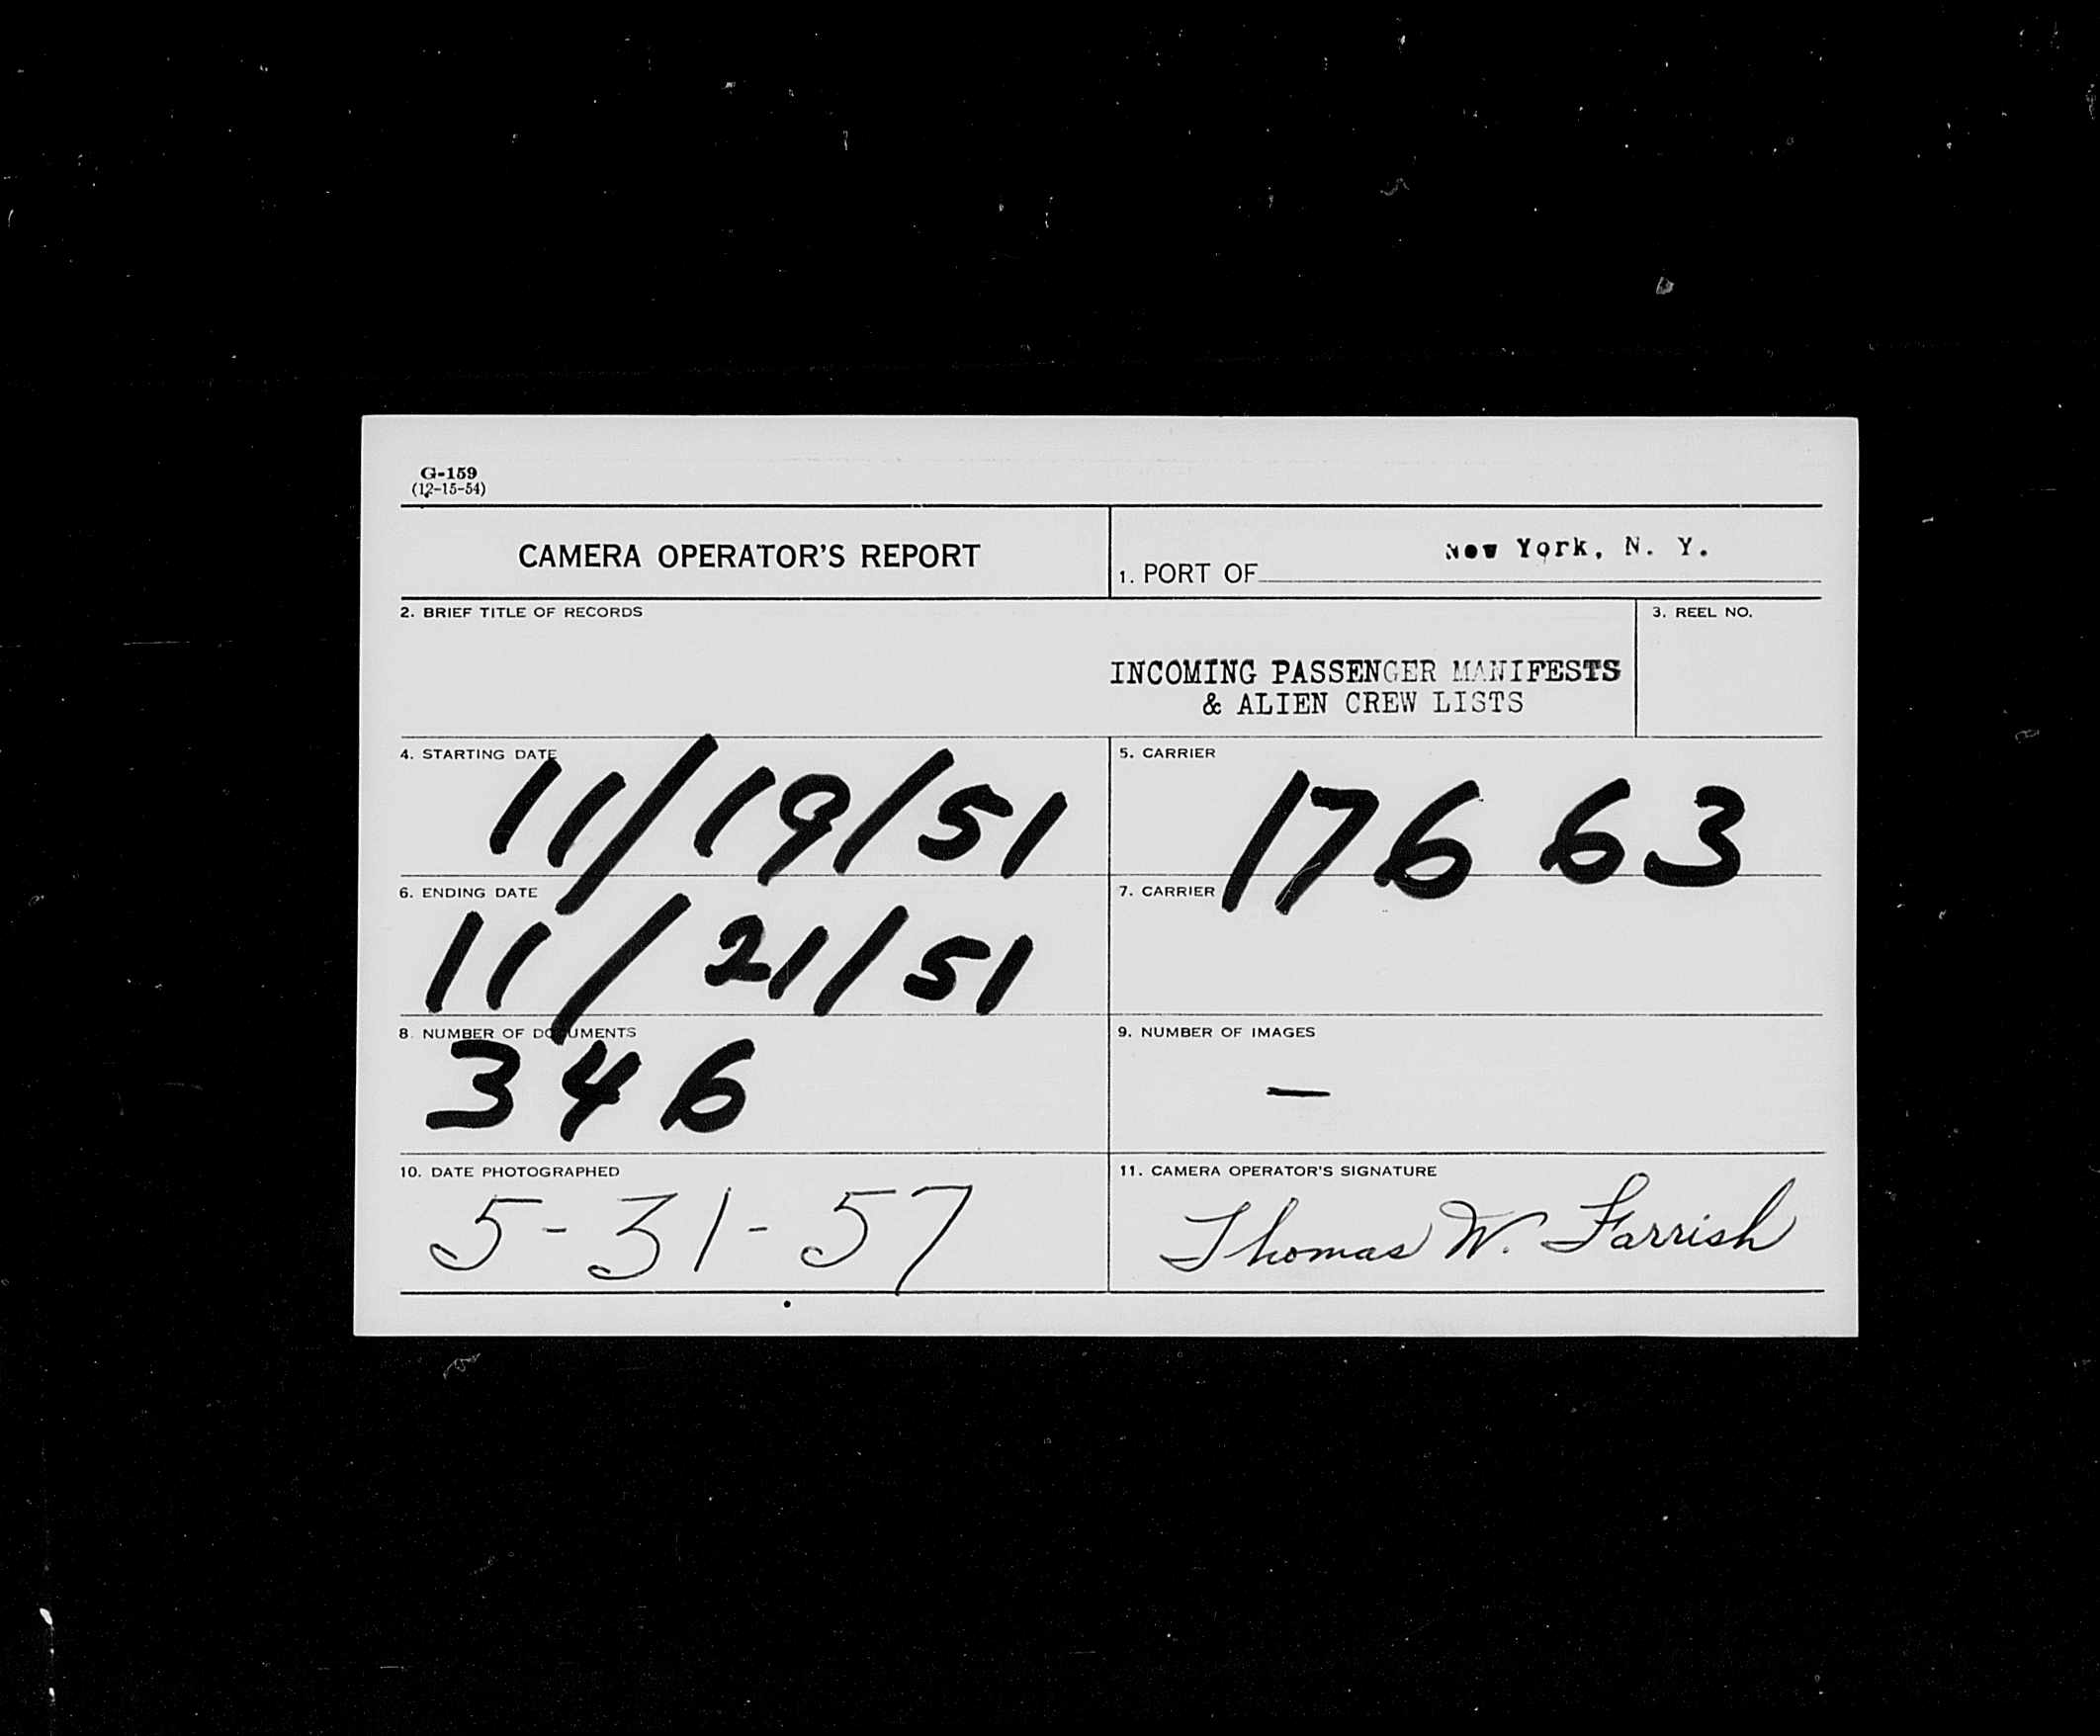 G-159
(12-15-54)
CAMERA OPERATOR'S REPORT
1. PORT OF New York, N. Y.
2. BRIEF TITLE OF RECORDS
INCOMING PASSENGER MANIFESTS
& ALIEN CREW LISTS
3. REEL NO.
4. STARTING DATE
11/19/51
5. CARRIER
17663
6. ENDING DATE
11/21/51
7. CARRIER
8. NUMBER OF DOCUMENTS
346
9. NUMBER OF IMAGES
—
10. DATE PHOTOGRAPHED
5-31-57
11. CAMERA OPERATOR'S SIGNATURE
Thomas W. Farrish